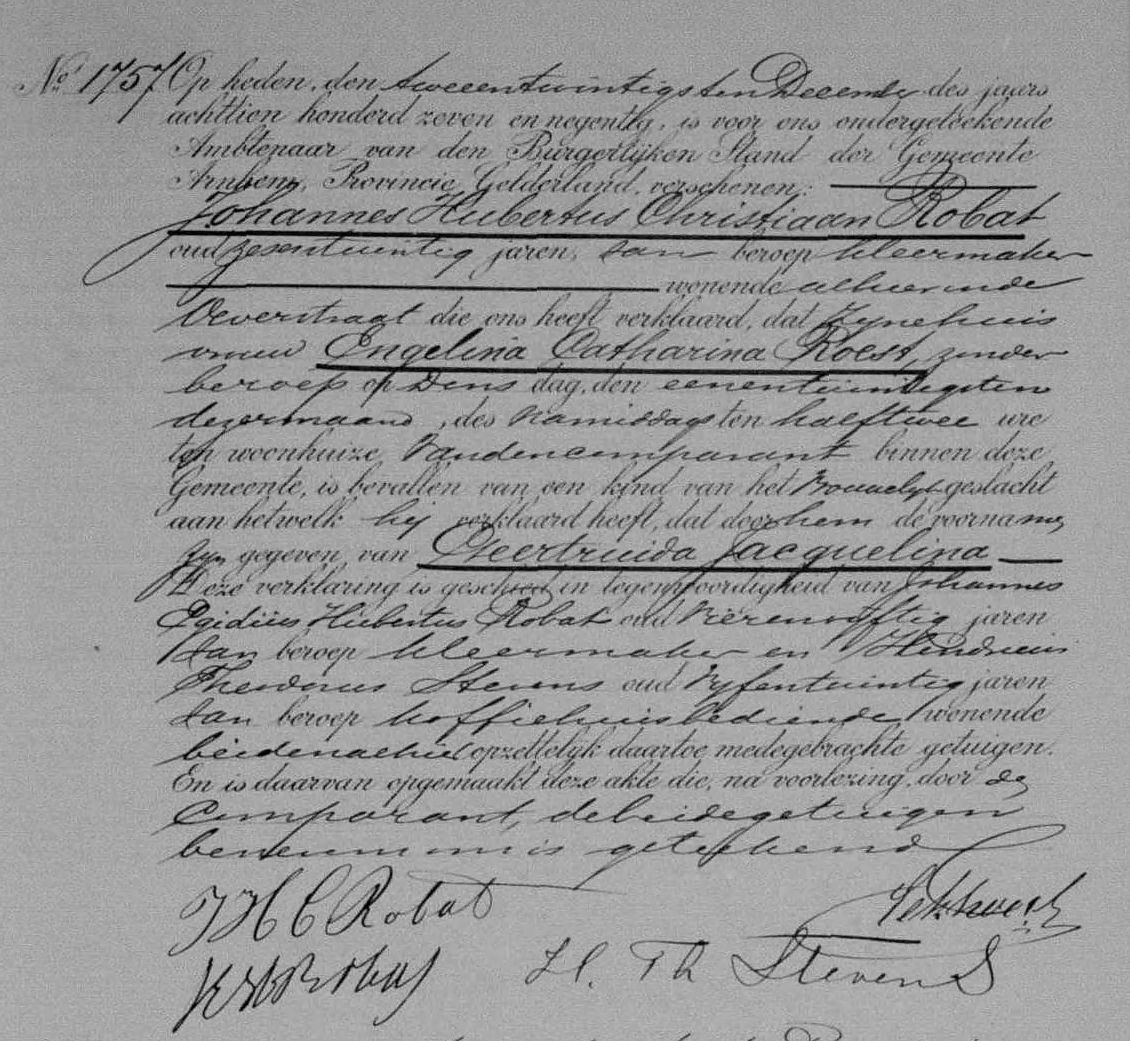 No. 1757 Op heden, den tweeentwintigsten December des jaars
achttien honderd zeven en negentig, is voor ons ondergeteekende
Ambtenaar van den Burgerlijken Stand der Gemeente
Arnhem, Provincie Gelderland, verschenen:
Johannes Hubertus Christiaan Robat
oud zesentwintig jaren, van beroep kleermaker
wonende alhier in de
Oeverstraat die ons heeft verklaard, dat zijne huis
vrouw Engelina Catharina Roest, zonder
beroep op Dinsdag, den eenentwintigsten
dezer maand, des namiddags ten half twee ure
ten woonhuize van den comparant binnen deze
Gemeente, is bevallen van een kind van het vrouwelijk geslacht
aan hetwelk hij verklaard heeft, dat door hem de voorname
zijn gegeven van Geertruida Jacquelina
Deze verklaring is geschied in tegenwoordigheid van Johannes
Egidius Hubertus Robat oud vierenvijftig jaren
van beroep kleermaker en Hendricus
Theodorus Stevens oud vijfentwintig jaren
van beroep koffiehuisbediende, wonende
beiden alhier opzettelijk daartoe medegebrachte getuigen.
En is daarvan opgemaakt deze akte die, na voorlezing, door de
Comparant, de beide getuigen
benevens ons is geteekend
J H C Robat
Robat H. Th Stevens